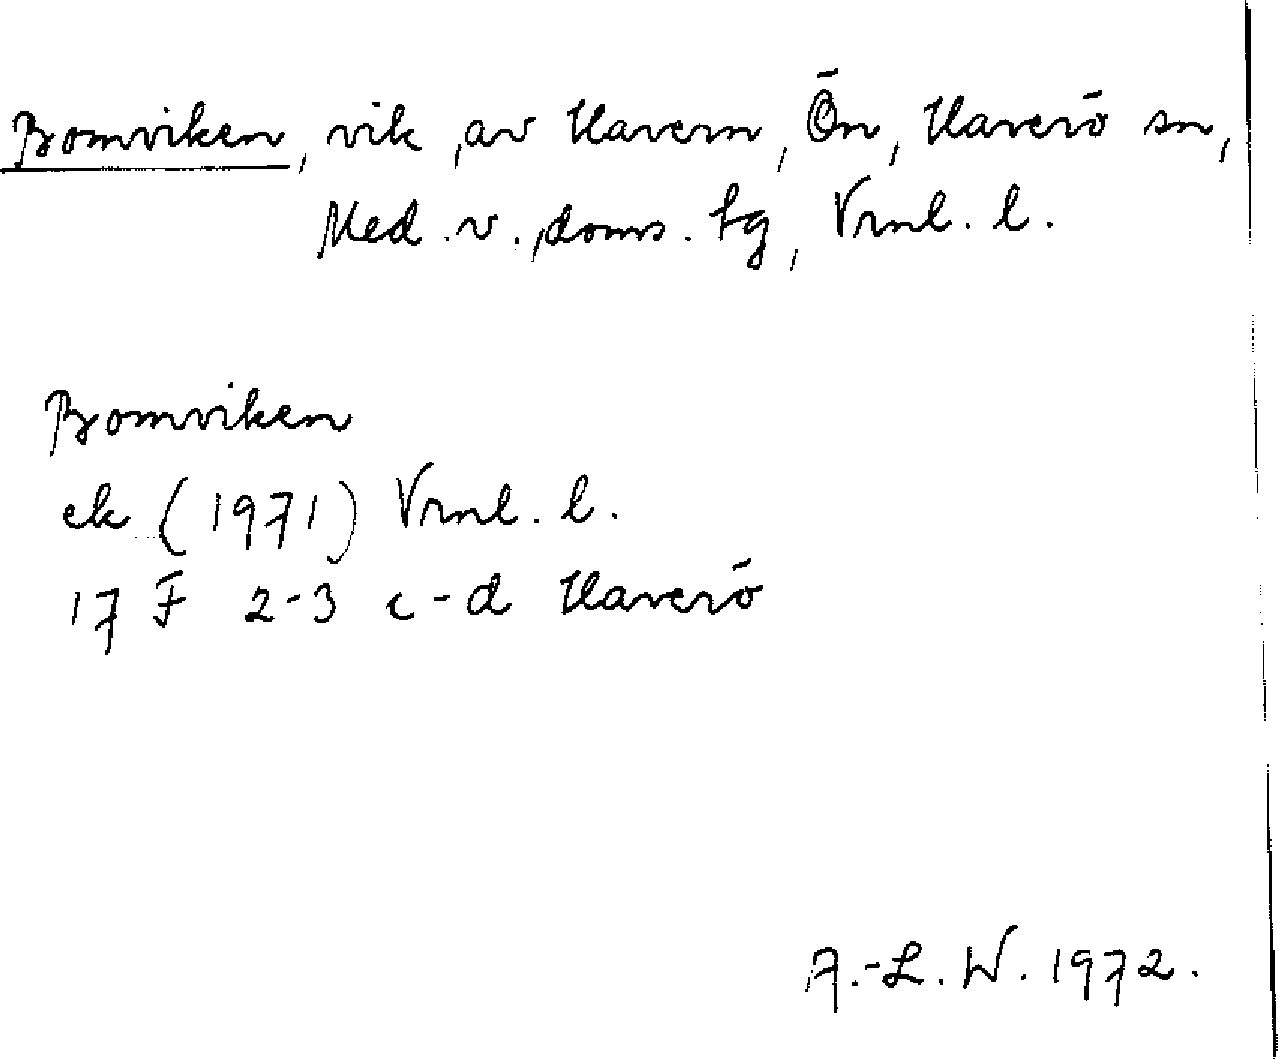 Bomviken, vik av Havern, Ön, Haverö sn,
Med. v. doms. tg, Vrnl. l.
Bomviken
ek (1971) Vrnl. l.
17 F 2-3 c-d Haverö
A.-L. W. 1972.